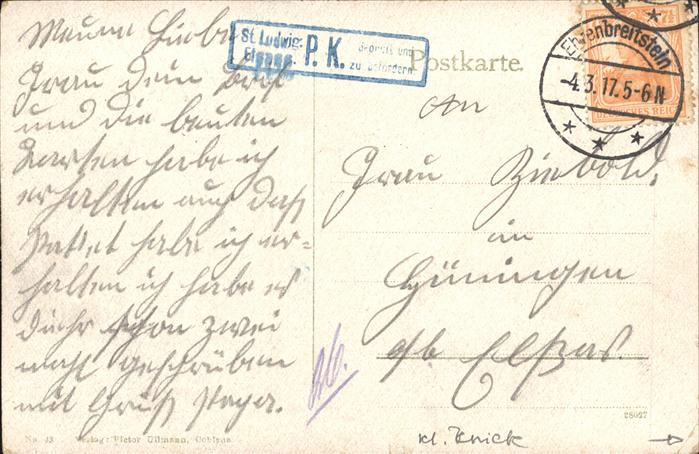 Meine Liebe
Frau dein Brief
und die beuten
Karten habe ich
erhalten auch das
Packet habe ich er=
halten ich habe es
diehr schon zwei
mahl geschrüben
mit Gruß Papa.
St. Ludwig:
P. K.
und
zu befördern
Postkarte.
Ehrenbreitstein
-4.3.17.5-6N
7½
DEUTSCHES REICH
An
Frau Ziebold.
in
Hüningen
o/b Elsas.
28027
No. 43 Verlag: Victor Ullmann, Coblenz
kl. Knick